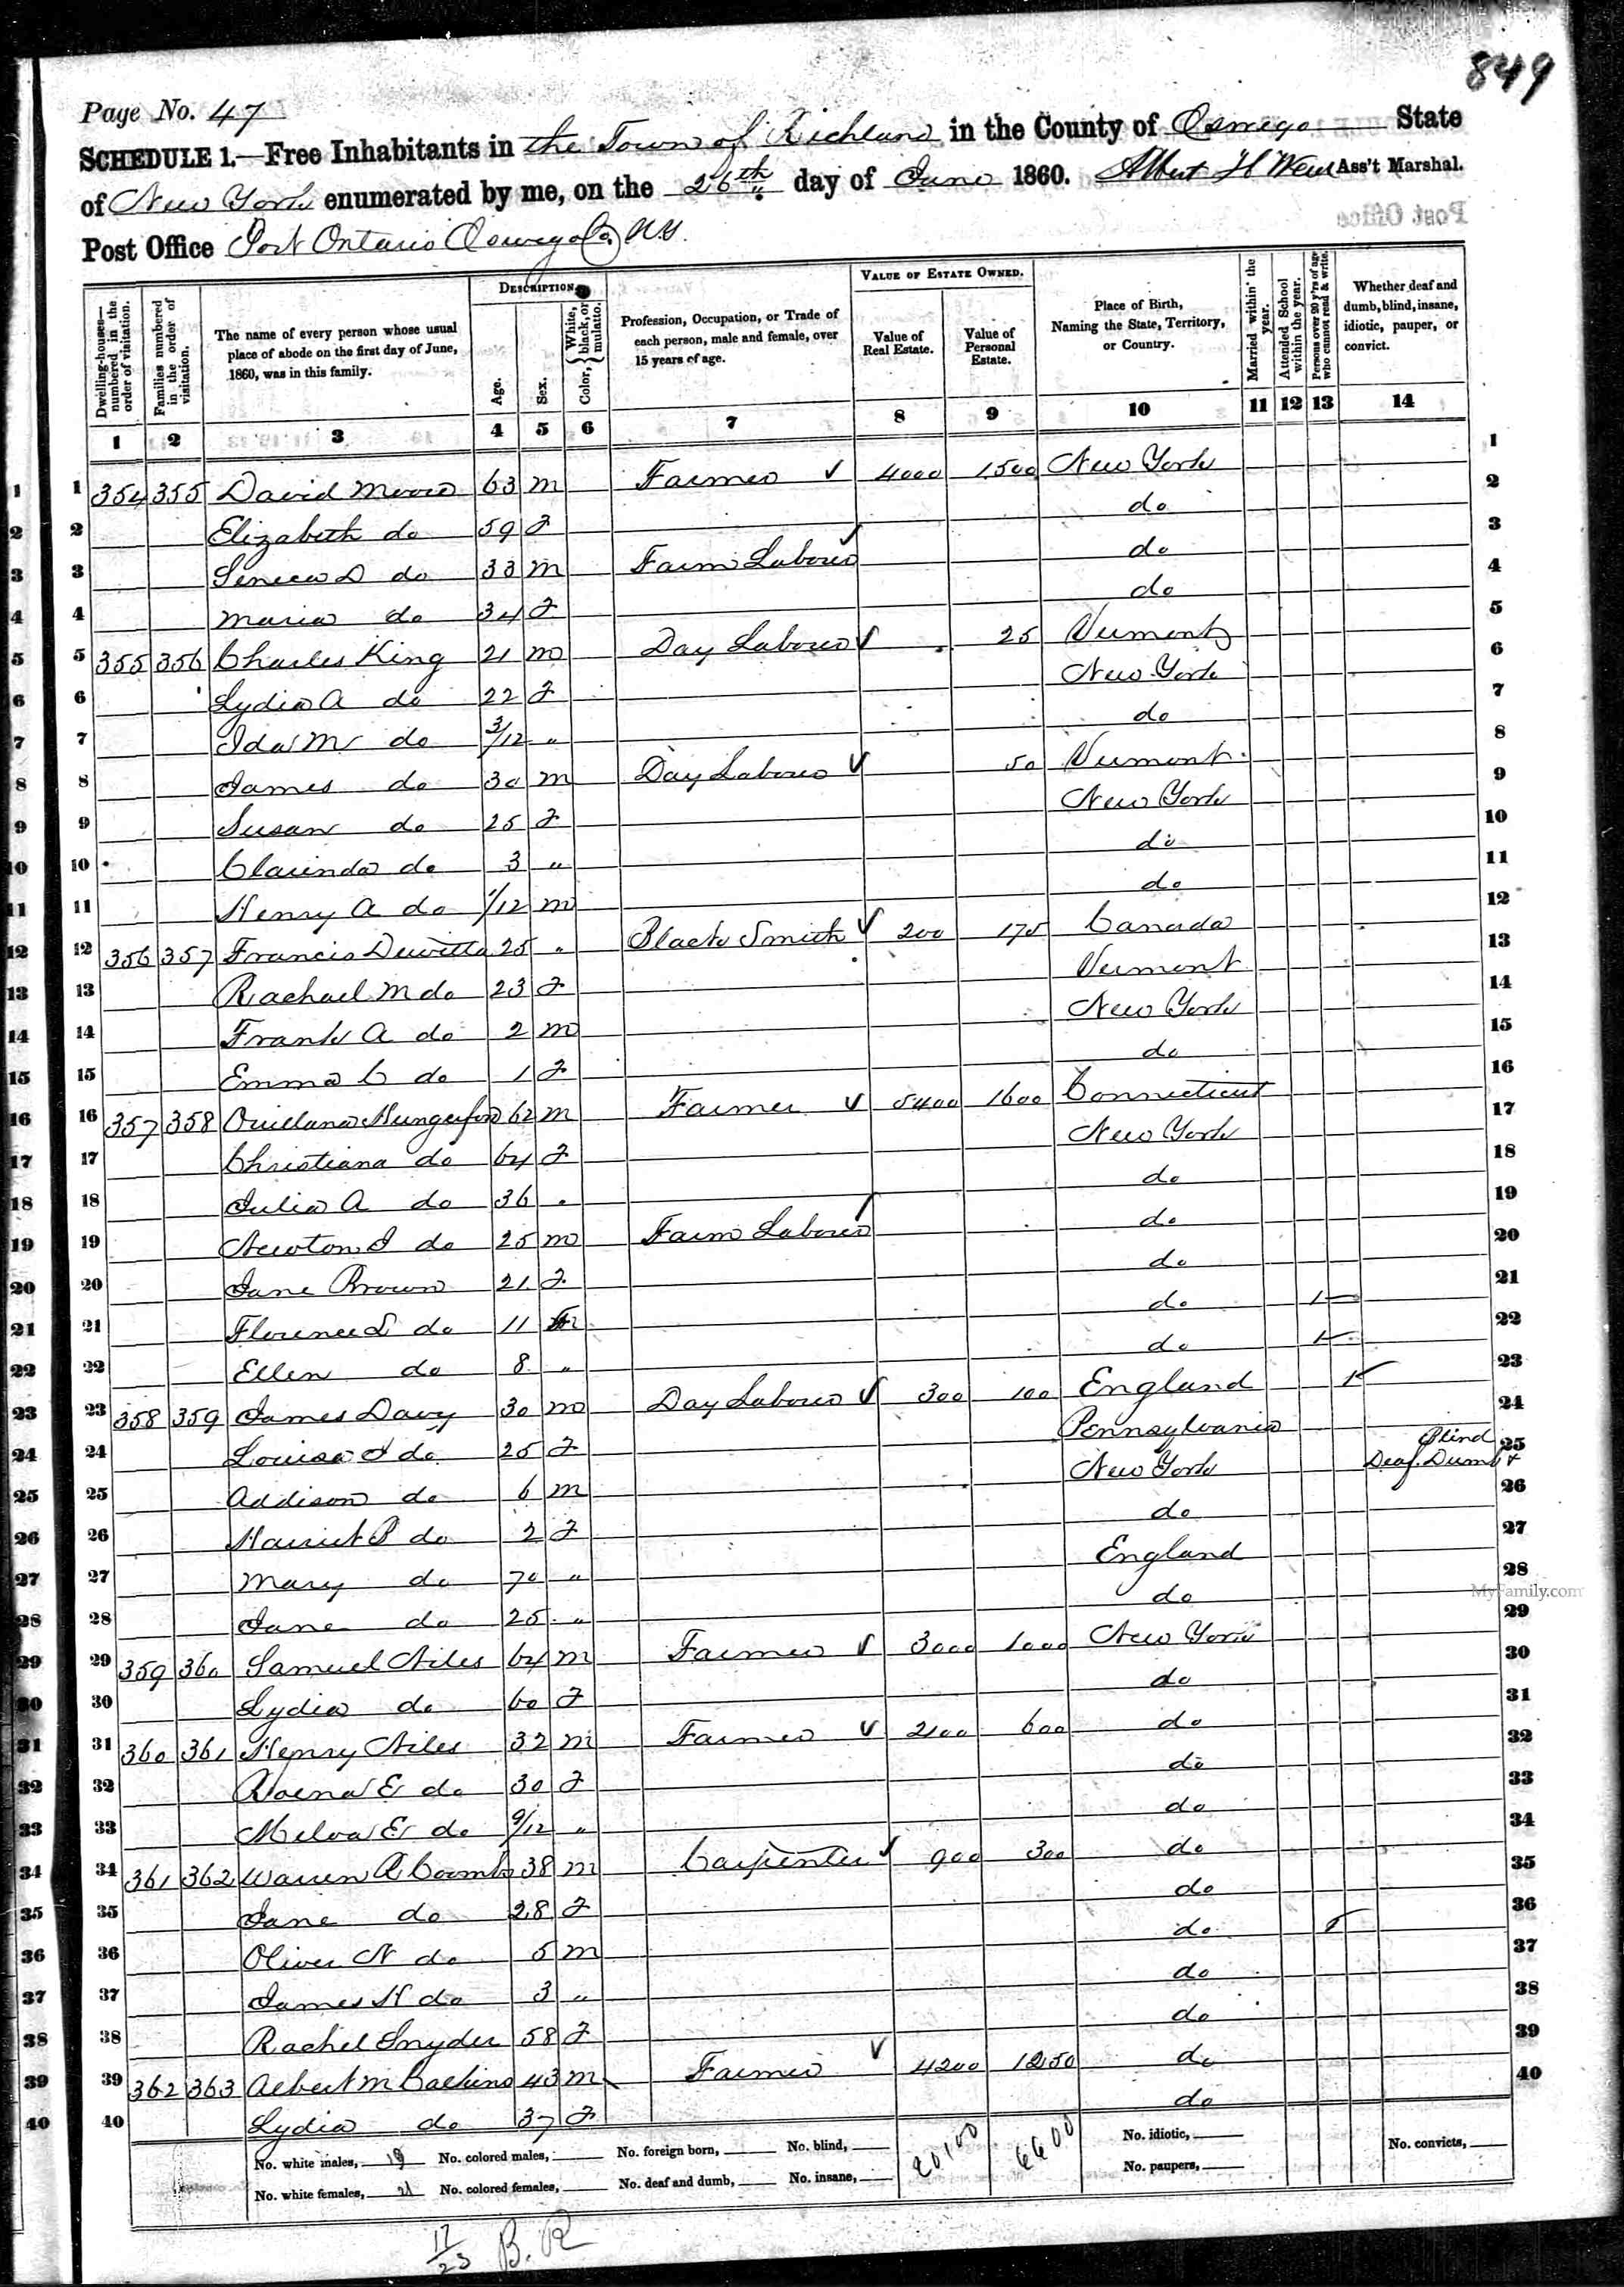 849
Page No. 47
SCHEDULE 1.—Free Inhabitants in the Town of Richland in the County of Oswego State
of New York enumerated by me, on the 26th day of June 1860. Albert H Weed Ass't Marshal.
Post Office Port Ontario Oswego Co. N.Y.
Dwelling-houses—numbered in the order of visitation. Families numbered in the order of visitation. The name of every person whose usual place of abode on the first day of June, 1860, was in this family. DESCRIPTION. Age. Sex. Color, {White, black, or mulatto. Profession, Occupation, or Trade of each person, male and female, over 15 years of age. VALUE OF ESTATE OWNED. Value of Real Estate. Value of Personal Estate. Place of Birth, Naming the State, Territory, or Country. Married within the year. Attended School within the year. Persons over 20 y'rs of age who cannot read & write. Whether deaf and dumb, blind, insane, idiotic, pauper, or convict.
1 2 3 4 5 6 7 8 9 10 11 12 13 14
1 354 355 David Moore 63 m Farmer 4000 1500 New York 1
2 Elizabeth do 59 F do 2
3 Seneca D do 33 m Farm Laborer do 3
4 Maria do 34 F do 4
5 355 356 Charles King 21 m Day Laborer 25 Vermont 5
6 Lydia A do 22 F New York 6
7 Ida M do 3/12 " do 7
8 James do 30 m Day Laborer 50 Vermont 8
9 Susan do 25 F New York 9
10 Clarinda do 3 " do 10
11 Henry A do 1/12 m do 11
12 356 357 Francis Dewitte 25 " Black Smith 200 175 Canada 12
13 Rachael M do 23 F Vermont 13
14 Frank A do 2 m New York 14
15 Emma C do 1 F do 15
16 357 358 Orillana Hungerford 62 m Farmer 5400 1600 Connecticut 16
17 Christiana do 64 F New York 17
18 Julia A do 36 " do 18
19 Newton J do 25 m Farm Laborer do 19
20 Jane Brown 21 F do 20
21 Florence L do 11 do 1 21
22 Ellen do 8 " do 1 22
23 358 359 James Davy 30 m Day Laborer 300 100 England 1 23
24 Louisa J do 25 F Pennsylvania 24
25 Addison do 6 m New York Deaf. Dumb & Blind 25
26 Harriet P do 2 F do 26
27 Mary do 70 " England 27
28 Jane do 25 " do 28
29 359 360 Samuel Niles 64 m Farmer 3000 1000 New York 29
30 Lydia do 60 F do 30
31 360 361 Henry Niles 32 m Farmer 2100 600 do 31
32 Roena E do 30 F do 32
33 Melva E do 9/12 " do 33
34 361 362 Warren R Coombs 38 m Carpenter 900 300 do 34
35 Jane do 28 F do 35
36 Oliver N do 5 m do 1 36
37 James H do 3 " do 37
38 Rachel Snyder 58 F do 38
39 362 363 Albert M Calkins 43 m Farmer 4200 1250 do 39
40 Lydia do 37 F do 40
No. white males, 19 No. colored males, No. foreign born, No. blind, 20100 6600 No. idiotic, No. convicts,
No. white females, 21 No. colored females, No. deaf and dumb, No. insane, No. paupers,
17/23 B. R
MyFamily.com